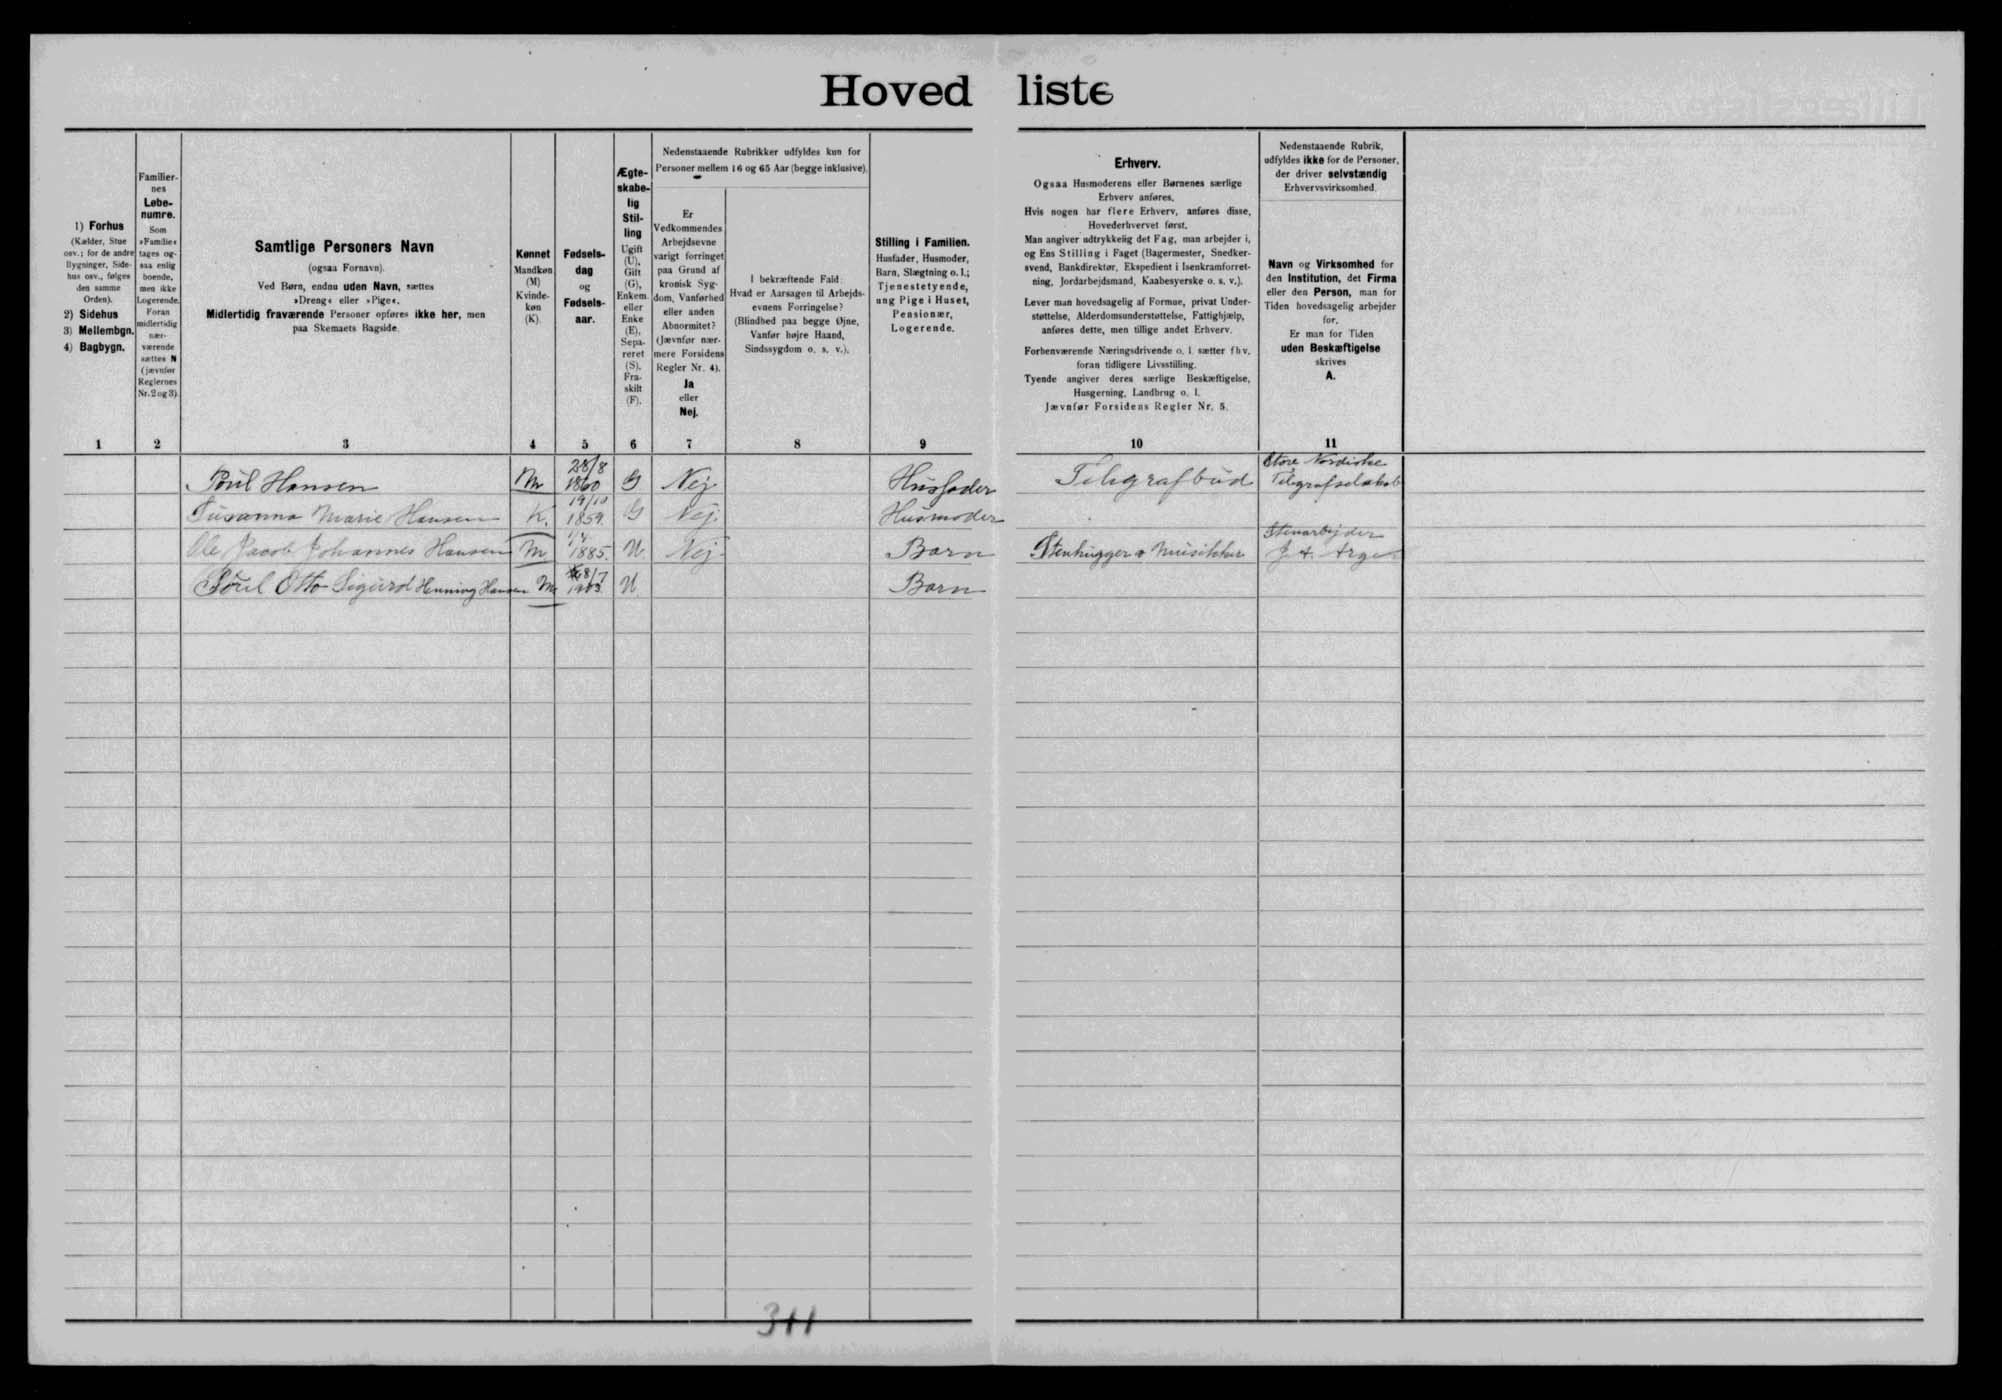 Hovedliste
1) Forhus
(Kælder, Stue
osv.; for de andre
Bygninger, Side-
hus osv., følges
den samme
Orden).
2) Sidehus
3) Mellembgn.
4) Bagbygn.
Familier-
nes
Løbe-
numre.
Som
»Familie«
tages og-
saa enlig
boende,
men ikke
Logerende.
Foran
midlertidig
nær-
værende
sættes N
(jævnfør
Reglernes
Nr. 2 og 3).
Samtlige Personers Navn
(ogsaa Fornavn).
Ved Børn, endnu uden Navn, sættes
»Dreng« eller »Pige«.
Midlertidig fraværende Personer opføres ikke her, men
paa Skemaets Bagside.
Kønnet
Mandkøn
(M)
Kvinde-
køn
(K).
Fødsels-
dag
og
Fødsels-
aar.
Ægte-
skabe-
lig
Stil-
ling
Ugift
(U),
Gift
(G),
Enkem.
eller
Enke
(E),
Sepa-
reret
(S),
Fra-
skilt
(F).
Nedenstaaende Rubrikker udfyldes kun for
Personer mellem 16 og 65 Aar (begge inklusive).
Er
Vedkommendes
Arbejdsevne
varigt forringet
paa Grund af
kronisk Syg-
dom, Vanførhed
eller anden
Abnormitet?
(Jævnfør nær-
mere Forsidens
Regler Nr. 4).
Ja
eller
Nej.
I bekræftende Fald:
Hvad er Aarsagen til Arbejds-
evnens Forringelse?
(Blindhed paa begge Øjne,
Vanfør højre Haand,
Sindssygdom o. s. v.).
Stilling i Familien.
Husfader, Husmoder,
Barn, Slægtning o. l.;
Tjenestetyende,
ung Pige i Huset,
Pensionær,
Logerende.
Erhverv.
Ogsaa Husmoderens eller Børnenes særlige
Erhverv anføres.
Hvis nogen har flere Erhverv, anføres disse,
Hovederhvervet først.
Man angiver udtrykkelig det Fag, man arbejder i,
og Ens Stilling i Faget (Bagermester, Snedker-
svend, Bankdirektør, Ekspedient i Isenkramforret-
ning, Jordarbejdsmand, Kaabesyerske o. s. v.).
Lever man hovedsagelig af Formue, privat Under-
støttelse, Alderdomsunderstøttelse, Fattighjælp,
anføres dette, men tillige andet Erhverv.
Forhenværende Næringsdrivende o. l. sætter fhv.
foran tidligere Livsstilling.
Tyende angiver deres særlige Beskæftigelse,
Husgerning, Landbrug o. l.
Jævnfør Forsidens Regler Nr. 5.
Nedenstaaende Rubrik,
udfyldes ikke for de Personer,
der driver selvstændig
Erhvervsvirksomhed.
Navn og Virksomhed for
den Institution, det Firma
eller den Person, man for
Tiden hovedsagelig arbejder
for.
Er man for Tiden
uden Beskæftigelse
skrives
A.
1 2 3 4 5 6 7 8 9 10 11
Poul Hansen M 28/8 1860 G Nej Husfader Telegrafbud Store Nordiske Telegrafselskab
Susanna Marie Hansen K. 19/10 1859. G Nej. Husmoder
Ole Jacob Johannes Hansen M 1885. U Nej Barn Stenhugger & Musikker Stenarbejder
Poul Otto Sigurd Henning Hansen M 1903. U. Barn
311